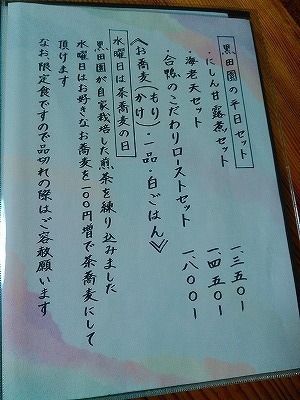 黒田園の平日セット
・にしん甘露煮セット 一、三五〇ー
・海老天セット 一、四五〇ー
・合鴨のこだわりローストセット 一、八〇〇ー
《お蕎麦(もりかけ)・一品・白ごはん》
水曜日は茶蕎麦の日
黒田園が自家栽培した煎茶を練り込みました
水曜日はお好きなお蕎麦を一〇〇円増で茶蕎麦にして
頂けます
なお、限定食ですので品切れの際はご容赦願います